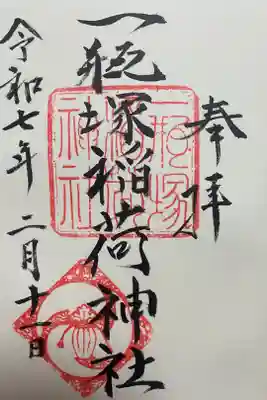 奉拝
一瓶塚稲荷神社
一瓶塚
稲荷
神社
令和七年 二月十一日